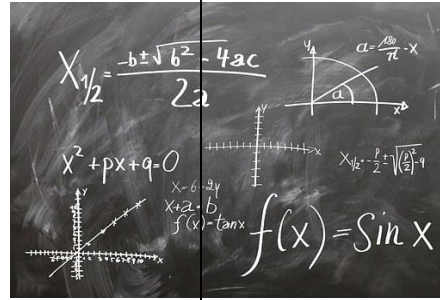 X₁/₂ = (-b ± √(b² - 4ac)) / 2a
a = 180/π · x
y
a
x
x² + px + q = 0
y
x
X₁/₂ = -p/2 ± √((p/2)² - q)
x = 6 - 2y
x + a = b
f(x) = tan x
f(x) = Sin x
y
x